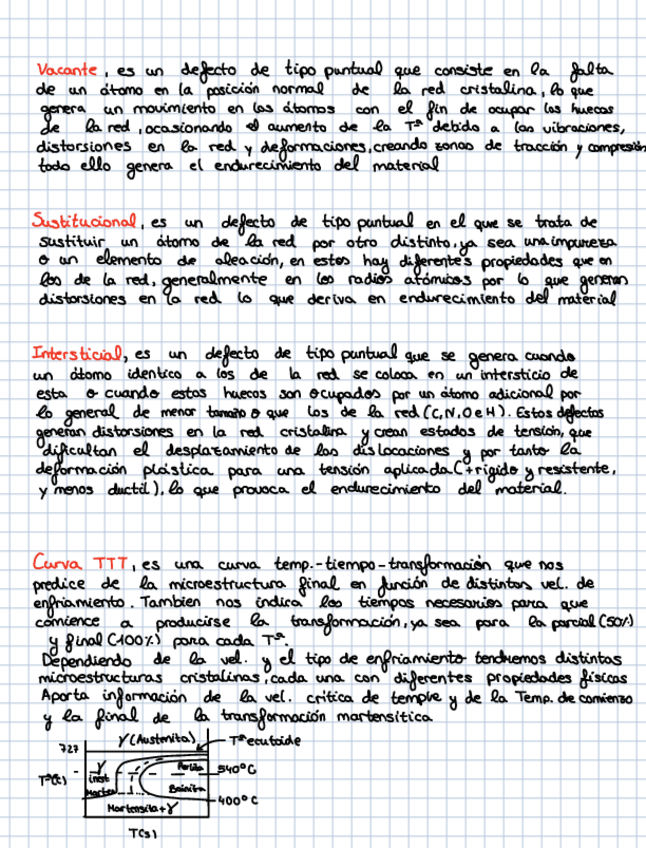 Vacante, es un defecto de tipo puntual que consiste en la falta
de un átomo en la posición normal de la red cristalina, lo que
genera un movimiento en los átomos con el fin de ocupar los huecos
de la red, ocasionando el aumento de la Tª debido a las vibraciones,
distorsiones en la red y deformaciones, creando zonas de tracción y compresión
todo ello genera el endurecimiento del material
Sustitucional, es un defecto de tipo puntual en el que se trata de
sustituir un átomo de la red por otro distinto, ya sea una impureza
o un elemento de aleación, en estos hay diferentes propiedades que en
los de la red, generalmente en los radios atómicos por lo que generan
distorsiones en la red lo que deriva en endurecimiento del material
Intersticial, es un defecto de tipo puntual que se genera cuando
un átomo identico a los de la red se coloca en un intersticio de
esta o cuando estos huecos son ocupados por un átomo adicional por
lo general de menor tamaño que los de la red (C, N, O e H). Estos defectos
generan distorsiones en la red cristalina y crean estados de tensión, que
dificultan el desplazamiento de las dislocaciones y por tanto la
deformación plástica para una tensión aplicada (+rigido y resistente,
y menos ductil), lo que provoca el endurecimiento del material.
Curva TTT, es una curva temp.-tiempo-transformación que nos
predice de la microestructura final en función de distintas vel. de
enfriamiento. Tambien nos indica los tiempos necesarios para que
comience a producirse la transformación, ya sea para la parcial (50%)
y final (100%) para cada Tª.
Dependiendo de la vel. y el tipo de enfriamiento tendremos distintas
microestructuras cristalinas, cada una con diferentes propiedades físicas
Aporta información de la vel. critica de temple y de la Temp. de comienzo
y la final de la transformación martensítica
γ (Austenita) Tª ecutoide
727
γ inst Perlita 540°C
Tª(c)
Marten Bainita
400°C
Martensita + γ
T(s)